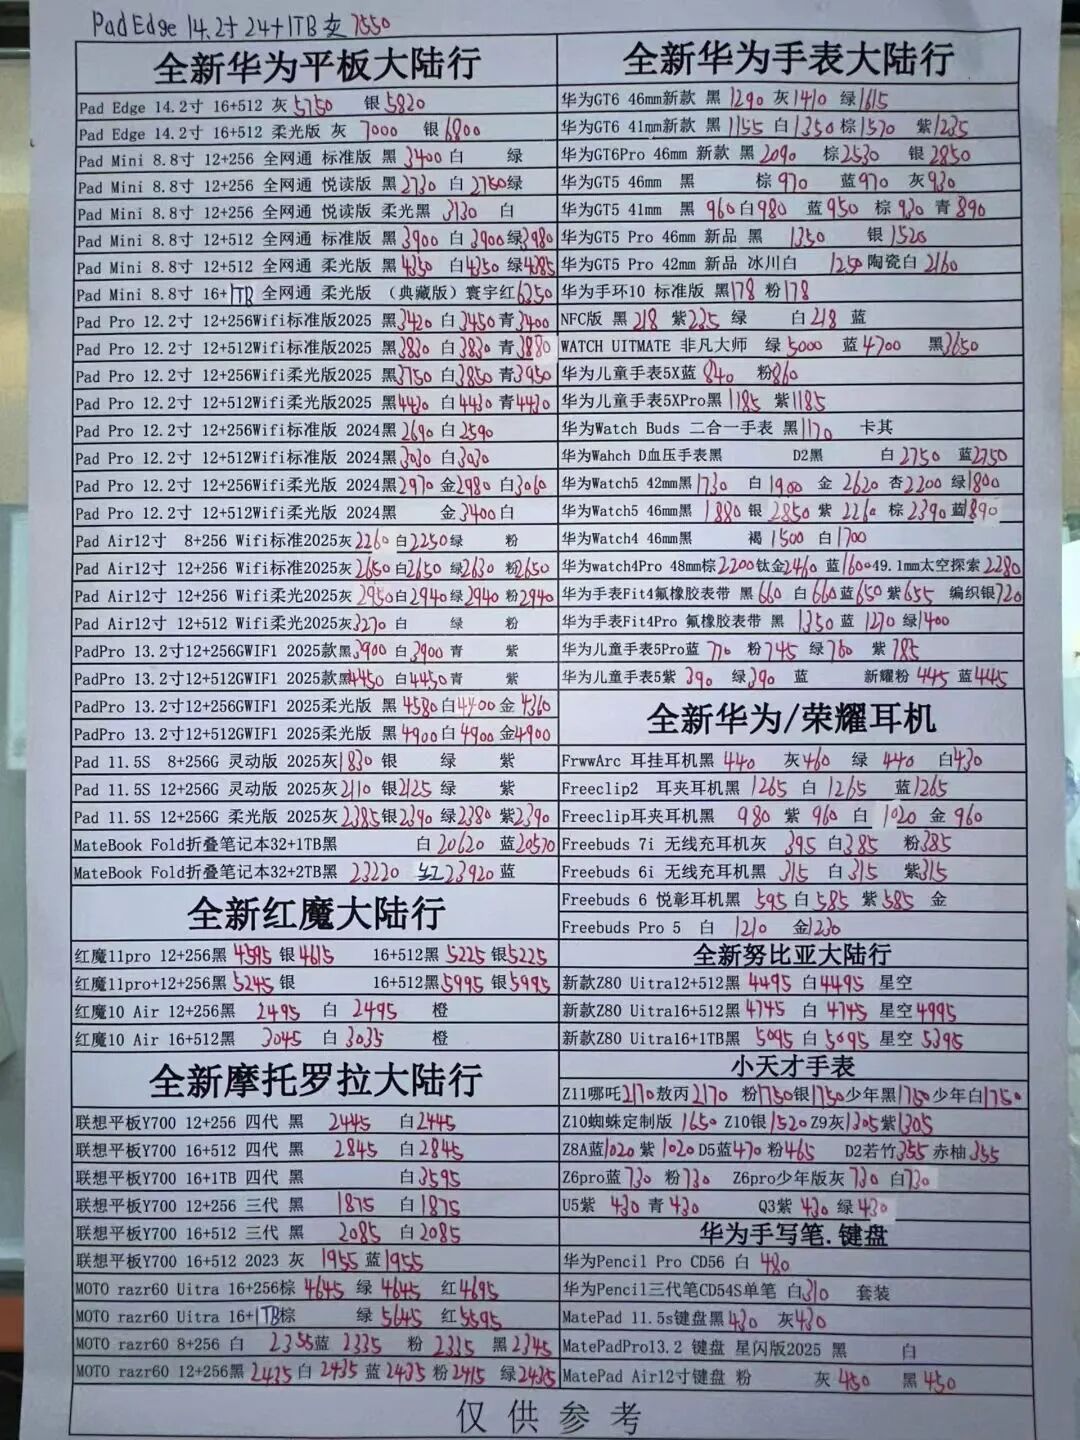 Pad Edge 14.2寸 24+1TB 灰 7550
全新华为平板大陆行
Pad Edge 14.2寸 16+512 灰 5750 银 5820
Pad Edge 14.2寸 16+512 柔光版 灰 7000 银 6800
Pad Mini 8.8寸 12+256 全网通 标准版 黑 3400 白 绿
Pad Mini 8.8寸 12+256 全网通 悦读版 黑 2730 白 2750 绿
Pad Mini 8.8寸 12+256 全网通 悦读版 柔光黑 3130 白
Pad Mini 8.8寸 12+512 全网通 标准版 黑 3900 白 3900 绿 3980
Pad Mini 8.8寸 12+512 全网通 柔光版 黑 4350 白 4350 绿 4385
Pad Mini 8.8寸 16+1TB 全网通 柔光版 （典藏版）寰宇红 6350
Pad Pro 12.2寸 12+256Wifi标准版2025 黑 3420 白 3450 青 3400
Pad Pro 12.2寸 12+512Wifi标准版2025 黑 3830 白 3830 青 3880
Pad Pro 12.2寸 12+256Wifi柔光版2025 黑 3750 白 3850 青 3950
Pad Pro 12.2寸 12+512Wifi柔光版2025 黑 4430 白 4430 青 4430
Pad Pro 12.2寸 12+256Wifi标准版 2024黑 2690 白 2590
Pad Pro 12.2寸 12+512Wifi标准版 2024黑 3030 白 3030
Pad Pro 12.2寸 12+256Wifi柔光版 2024黑 2970 金 2980 白 3060
Pad Pro 12.2寸 12+512Wifi柔光版 2024黑 金 3400 白
Pad Air12寸 8+256 Wifi标准2025灰 2260 白 2250 绿 粉
Pad Air12寸 12+256 Wifi标准2025灰 2650 白 2650 绿 2630 粉 2650
Pad Air12寸 12+256 Wifi柔光2025灰 2950 白 2940 绿 2940 粉 2940
Pad Air12寸 12+512 Wifi柔光2025灰 3270 白 绿 粉
PadPro 13.2寸12+256GWIF1 2025款黑 3900 白 3900 青 紫
PadPro 13.2寸12+512GWIF1 2025款黑 4450 白 4450 青 紫
PadPro 13.2寸12+256GWIF1 2025柔光版 黑 4580 白 4400 金 4360
PadPro 13.2寸12+512GWIF1 2025柔光版 黑 4900 白 4900 金 4900
Pad 11.5S 8+256G 灵动版 2025灰 1830 银 绿 紫
Pad 11.5S 12+256G 灵动版 2025灰 2110 银 2125 绿 紫
Pad 11.5S 12+256G 柔光版 2025灰 2385 银 2390 绿 2380 紫 2390
MateBook Fold折叠笔记本32+1TB黑 白 20620 蓝 20570
MateBook Fold折叠笔记本32+2TB黑 23220 红 23920 蓝
全新红魔大陆行
红魔11pro 12+256黑 4595 银 4615 16+512黑 5225 银 5225
红魔11pro+12+256黑 5245 银 16+512黑 5995 银 5995
红魔10 Air 12+256黑 2495 白 2495 橙
红魔10 Air 16+512黑 3045 白 3035 橙
全新摩托罗拉大陆行
联想平板Y700 12+256 四代 黑 2445 白 2445
联想平板Y700 16+512 四代 黑 2845 白 2845
联想平板Y700 16+1TB 四代 黑 白 3595
联想平板Y700 12+256 三代 黑 1875 白 1875
联想平板Y700 16+512 三代 黑 2085 白 2085
联想平板Y700 16+512 2023 灰 1955 蓝 1955
MOTO razr60 Uitra 16+256棕 4645 绿 4645 红 4695
MOTO razr60 Uitra 16+1TB棕 绿 5645 红 5595
MOTO razr60 8+256 白 蓝 2335 粉 2335 黑 2345
MOTO razr60 12+256黑 2435 白 2435 蓝 2435 粉 2415 绿 2435
全新华为手表大陆行
华为GT6 46mm新款 黑 1290 灰 1410 绿 1615
华为GT6 41mm新款 黑 1155 白 1350 棕 1570 紫 1235
华为GT6Pro 46mm 新款 黑 2090 棕 2530 银 2850
华为GT5 46mm 黑 棕 970 蓝 970 灰 930
华为GT5 41mm 黑 960 白 980 蓝 950 棕 930 青 890
华为GT5 Pro 46mm 新品 黑 1350 银 1520
华为GT5 Pro 42mm 新品 冰川白 1250 陶瓷白 2160
华为手环10 标准版 黑 178 粉 178
NFC版 黑 218 紫 235 绿 白 218 蓝
WATCH UITMATE 非凡大师 绿 5000 蓝 4700 黑 3650
华为儿童手表5X蓝 840 粉 860
华为儿童手表5XPro黑 1185 紫 1185
华为Watch Buds 二合一手表 黑 1170 卡其
华为Wahch D血压手表黑 D2黑 白 2750 蓝 2750
华为Watch5 42mm黑 1730 白 1900 金 2620 杏 2200 绿 1800
华为Watch5 46mm黑 1880 银 2850 紫 2260 棕 2390 蓝 1890
华为Watch4 46mm黑 褐 1500 白 1700
华为watch4Pro 48mm棕 2200 钛金 2460 蓝 1600 49.1mm太空探索 2280
华为手表Fit4氟橡胶表带 黑 660 白 660 蓝 650 紫 655 编织银 720
华为手表Fit4Pro 氟橡胶表带 黑 1350 蓝 1270 绿 1400
华为儿童手表5Pro蓝 770 粉 745 绿 760 紫 785
华为儿童手表5紫 390 绿 390 蓝 新耀粉 445 蓝 445
全新华为/荣耀耳机
FrwwArc 耳挂耳机黑 440 灰 460 绿 440 白 430
Freeclip2 耳夹耳机黑 1265 白 1265 蓝 1265
Freeclip耳夹耳机黑 980 紫 960 白 1020 金 960
Freebuds 7i 无线充耳机灰 395 白 385 粉 385
Freebuds 6i 无线充耳机黑 315 白 315 紫 315
Freebuds 6 悦彰耳机黑 595 白 585 紫 585 金
Freebuds Pro 5 白 1210 金 1230
全新努比亚大陆行
新款Z80 Uitra12+512黑 4495 白 4495 星空
新款Z80 Uitra16+512黑 4745 白 4745 星空 4995
新款Z80 Uitra16+1TB黑 5095 白 5095 星空 5395
小天才手表
Z11哪吒 2170 敖丙 2170 粉 1750 银 1750 少年黑 1750 少年白 1750
Z10蜘蛛定制版 1650 Z10银 1520 Z9灰 1305 紫 1305
Z8A蓝 1020 紫 1020 D5蓝 470 粉 465 D2若竹 355 赤柚 355
Z6pro蓝 730 粉 730 Z6pro少年版灰 730 白 730
U5紫 430 青 430 Q3紫 430 绿 430
华为手写笔.键盘
华为Pencil Pro CD56 白 480
华为Pencil三代笔CD54S单笔 白 310 套装
MatePad 11.5s键盘黑 430 灰 430
MatePadPro13.2 键盘 星闪版2025 黑 白
MatePad Air12寸键盘 粉 灰 450 黑 450
仅供参考